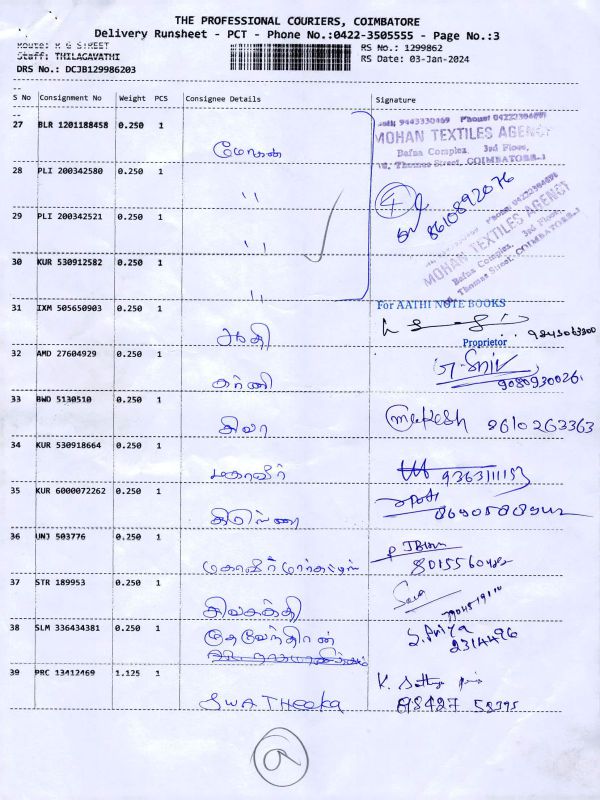 THE PROFESSIONAL COURIERS, COIMBATORE
Delivery Runsheet - PCT - Phone No.:0422-3505555 - Page No.:3
Route: M G STREET
RS No.: 1299862
Staff: THILAGAVATHI
RS Date: 03-Jan-2024
DRS No.: DCJB129986203
S No Consignment No Weight PCS Consignee Details Signature
27 BLR 1201188458 0.250 1 மோகன்
MOHAN TEXTILES AGENCY
Bafna Complex, 3rd Floor,
Thomas Street, COIMBATORE-1
28 PLI 200342580 0.250 1 "
4 8610892076
29 PLI 200342521 0.250 1 "
MOHAN TEXTILES AGENCY
Bafna Complex, 3rd Floor,
Thomas Street, COIMBATORE-1
30 KUR 530912582 0.250 1 "
31 IXM 505650903 0.250 1 ஆதி
For AATHI NOTE BOOKS
Proprietor
32 AMD 27604929 0.250 1 கர்ணி
9080930026
33 BWD 5130510 0.250 1 சிவா
Mukesh 8610263363
34 KUR 530918664 0.250 1 மகாவீர்
9363111153
35 KUR 6000072262 0.250 1
36 UNJ 503776 0.250 1
37 STR 189953 0.250 1 சிவசக்தி
38 SLM 336434381 0.250 1 தேவேந்திரன்
S. Priya
2314496
39 PRC 13412469 1.125 1 SWATHeeka
K.
98427 58395